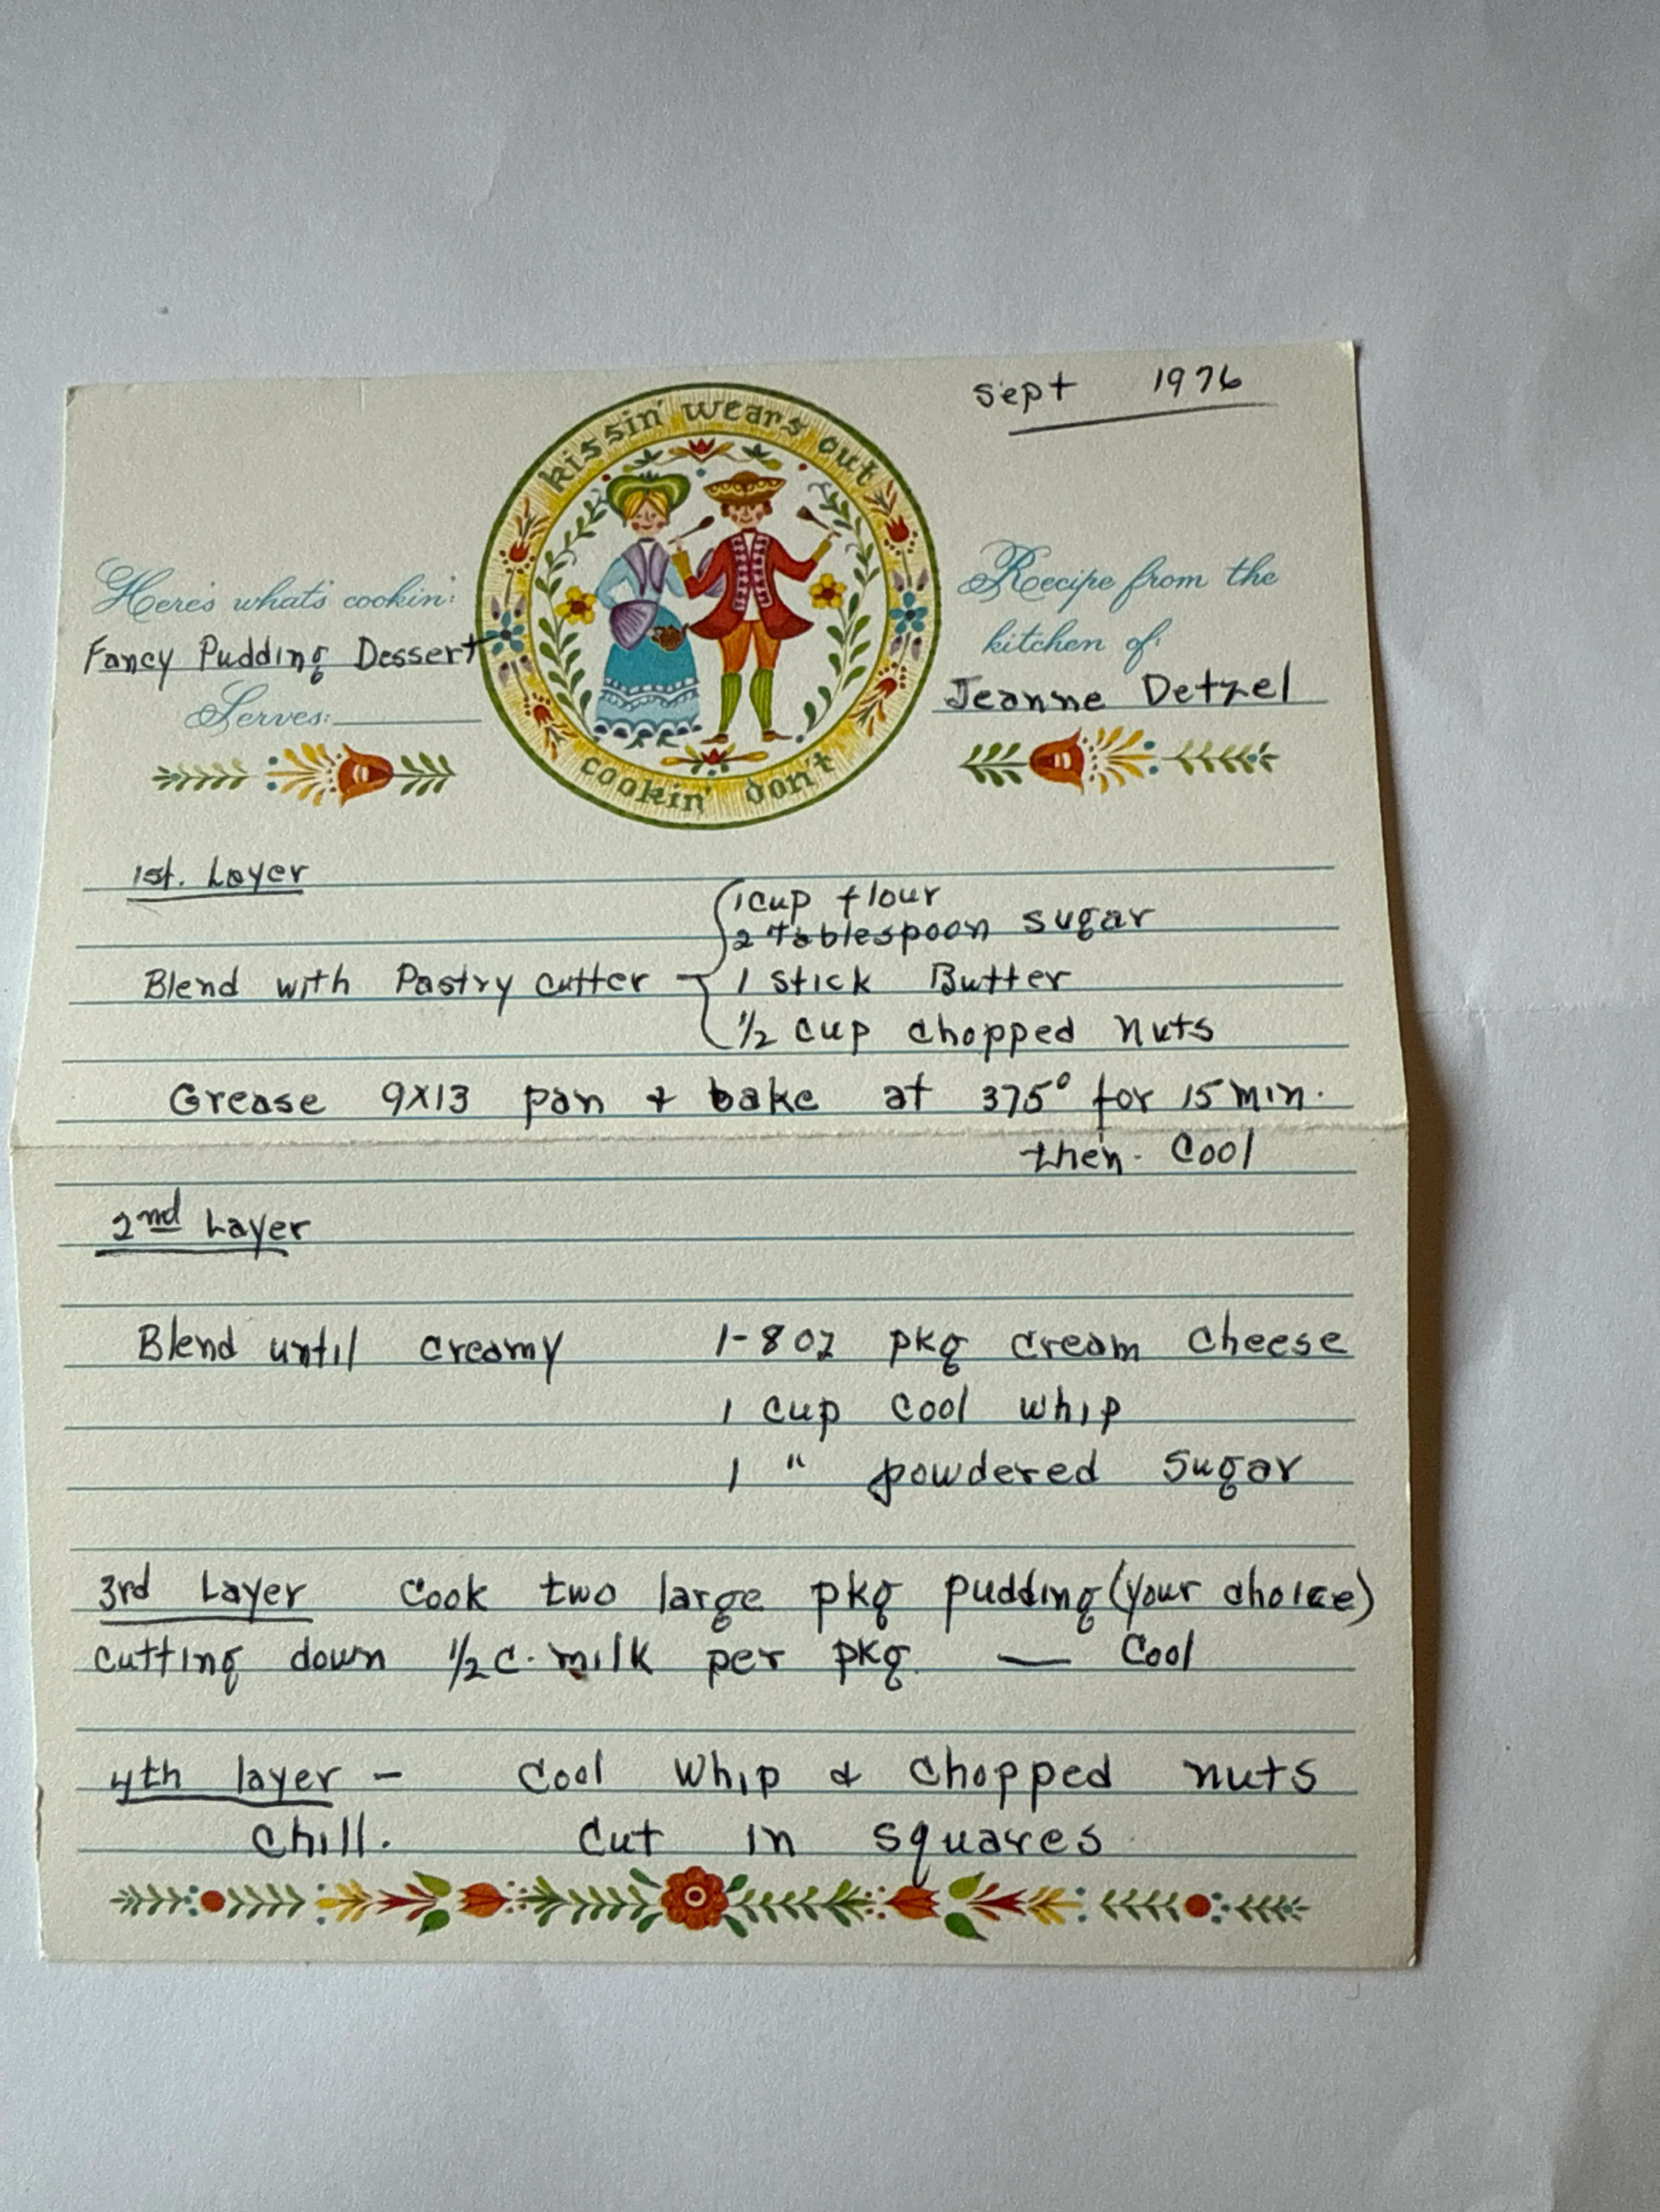 Sept 1976
kissin' wears out
cookin' don't
Here's what's cookin':
Fancy Pudding Dessert
Serves:
Recipe from the
kitchen of:
Jeanne Detzel
1st. Layer
1 cup flour
2 Tablespoon sugar
Blend with Pastry cutter - 1 stick Butter
1/2 cup chopped nuts
Grease 9x13 pan & bake at 375° for 15 min.
then. Cool
2nd Layer
Blend until creamy 1-8 oz pkg cream cheese
1 cup cool whip
1 " powdered sugar
3rd Layer Cook two large pkg pudding (your choice)
cutting down 1/2 c. milk per pkg. — Cool
4th layer - Cool Whip & chopped nuts
Chill. Cut in squares